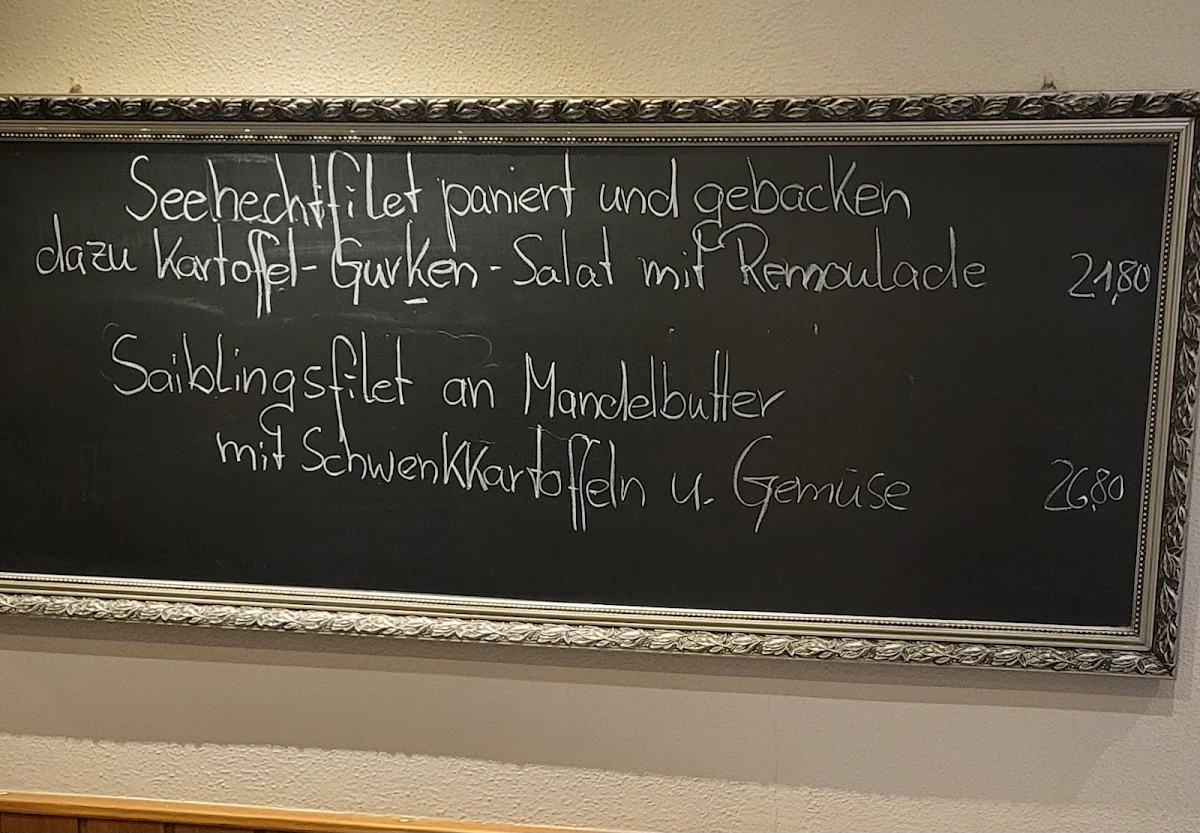 Seehechtfilet paniert und gebacken
dazu Kartoffel-Gurken-Salat mit Remoulade 21,80
Saiblingsfilet an Mandelbutter
mit Schwenkkartoffeln u. Gemüse 26,80